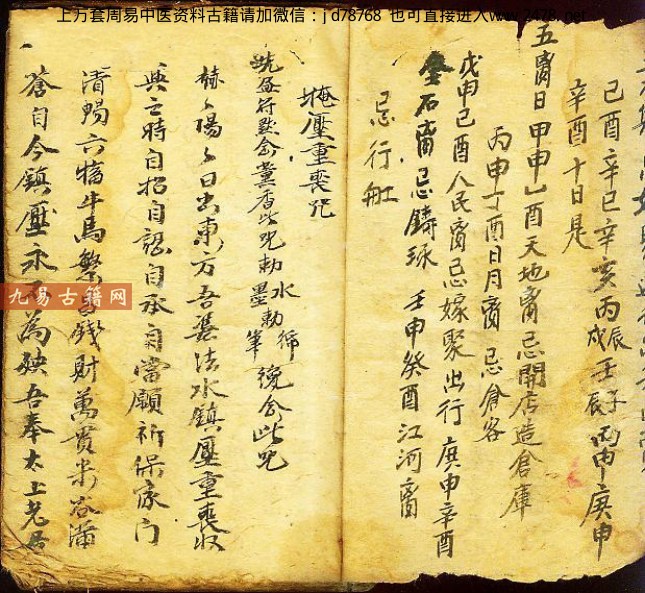 上万套周易中医资料古籍请加微信：jd78768 也可直接进入www.2478.net
己酉辛巳辛亥丙辰戌壬子辰丙申庚申
辛酉十日是
五离日甲申乙酉天地离忌開店造倉庫
丙申丁酉日月离忌會客
戊申己酉人民离忌嫁娶出行庚申辛酉
金石离忌鑄琢 壬申癸酉江河离
忌行舡
掩壓重喪咒
符念薰香此咒勅水墨勅符筆纔念此咒
赫々陽々日出東方吾集法水鎮壓重喪收
典之時自招自認自承自當願祈保家门
清暢六牛馬繁昌錢財萬貫米谷满
蒼自今鎮壓永為殃吾奉太上老君
九易古籍网